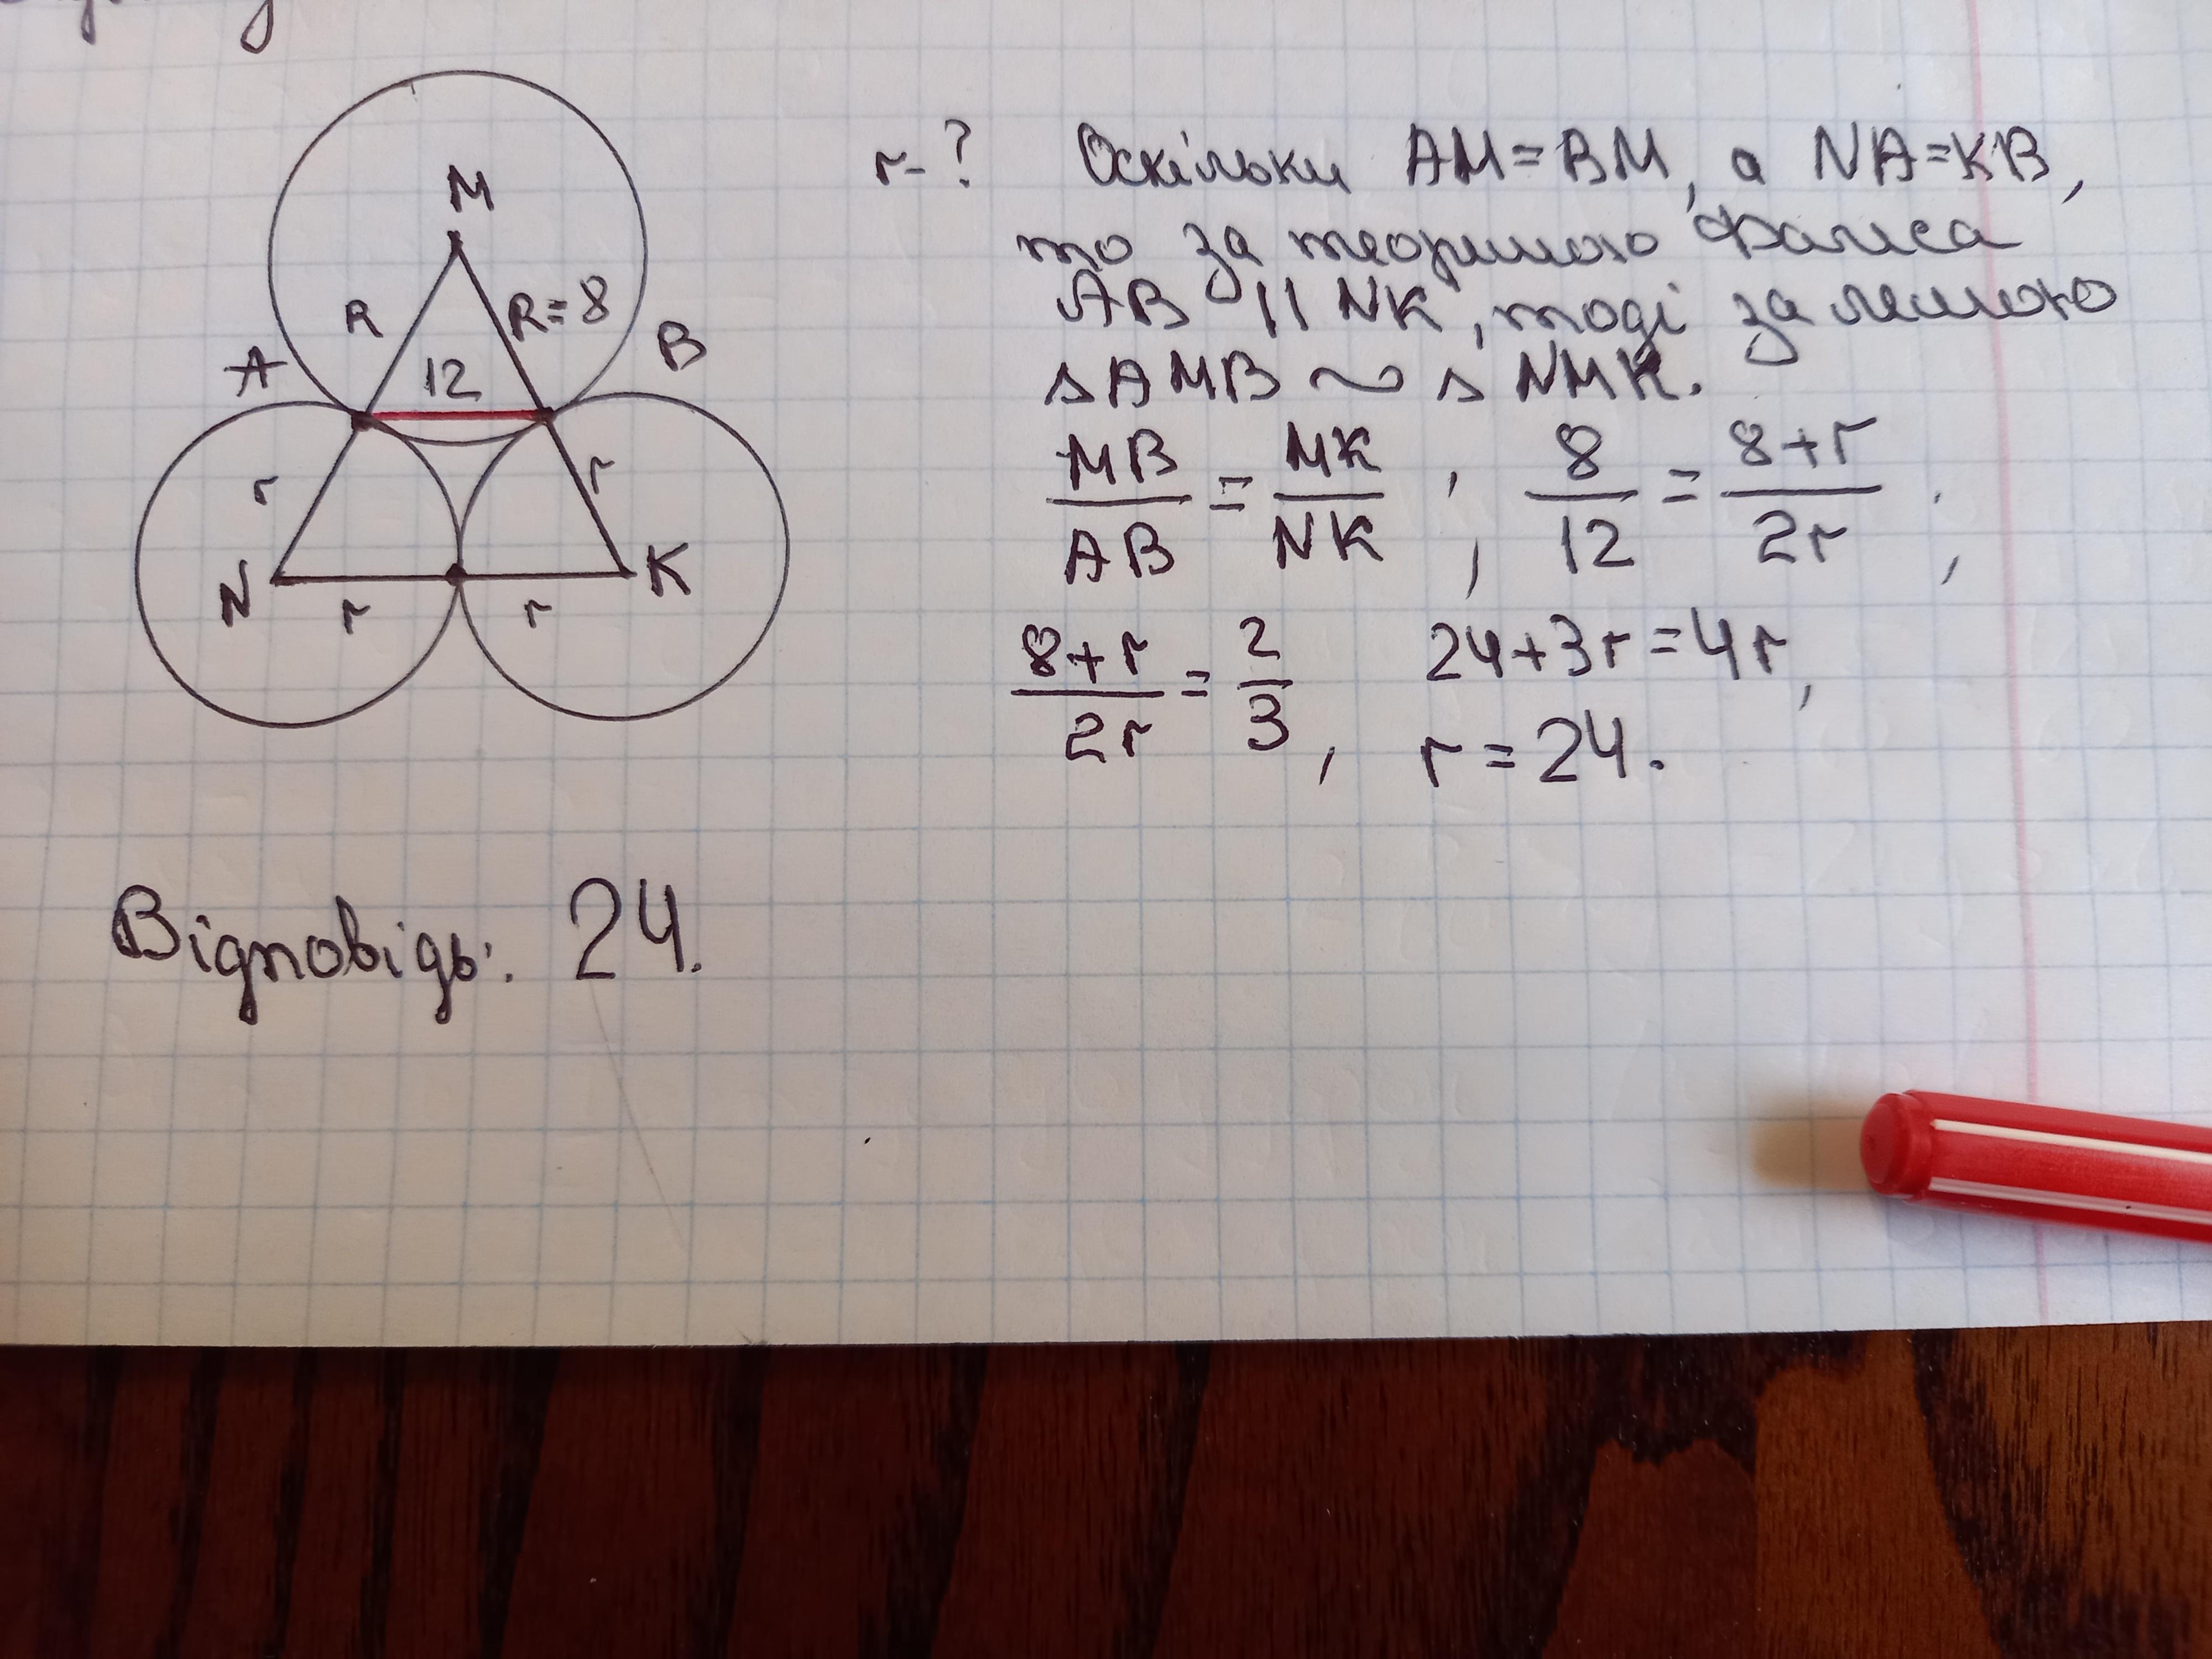 M
R
R=8
A
12
B
r
r
N
K
r
r
r-? Оскільки AM=BM, а NA=KB,
то за теоремою Фалеса
AB || NK, тоді за лемою
△AMB ~ △NMK.
MB/AB = MK/NK, 8/12 = 8+r/2r,
8+r/2r = 2/3, 24+3r=4r,
r=24.
Відповідь: 24.